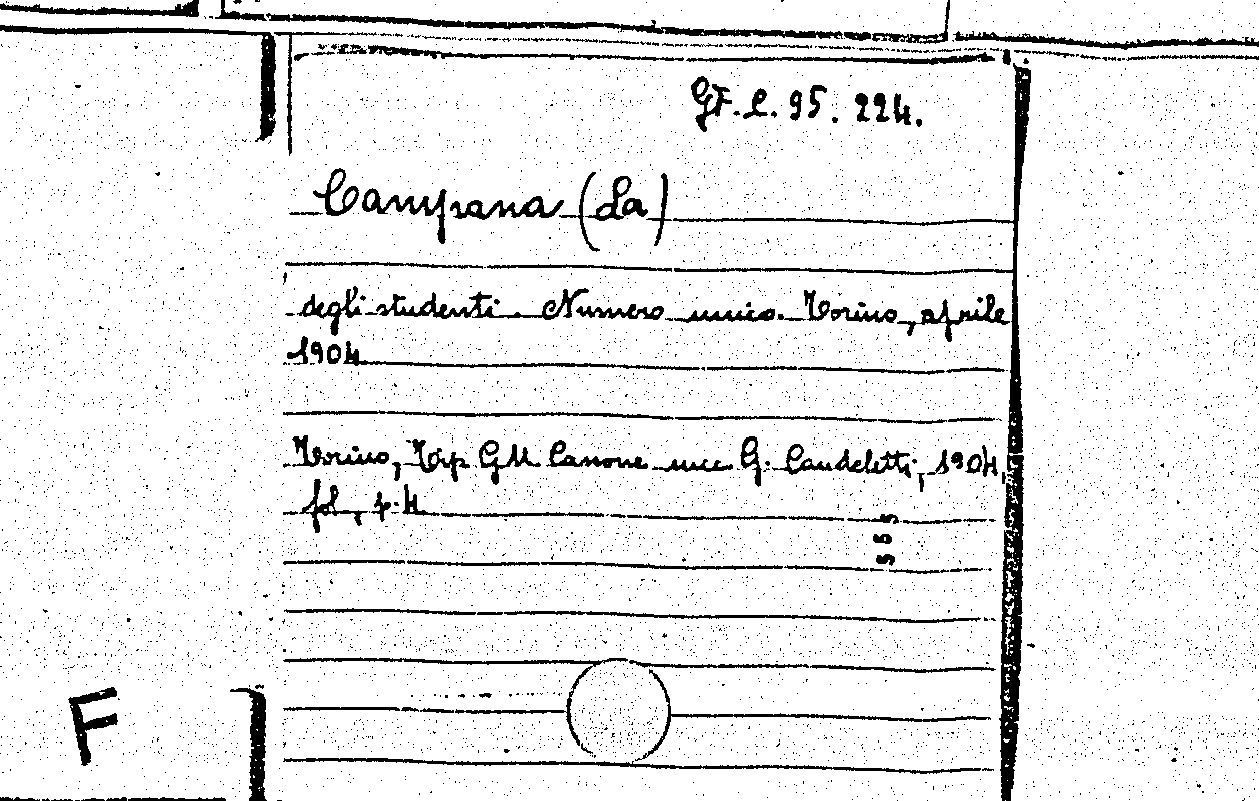 GF. C. 95. 224.
Campana (La)
degli studenti. Numero unico. Torino, aprile
1904
Torino, Tip GM Canone succ G. Candeletti, 1904,
fol, p. 4
555
F